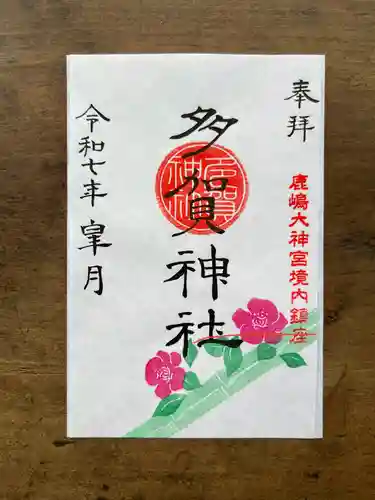 奉拝
鹿嶋大神宮境内鎮座
多賀神社
多賀神社
令和七年皐月